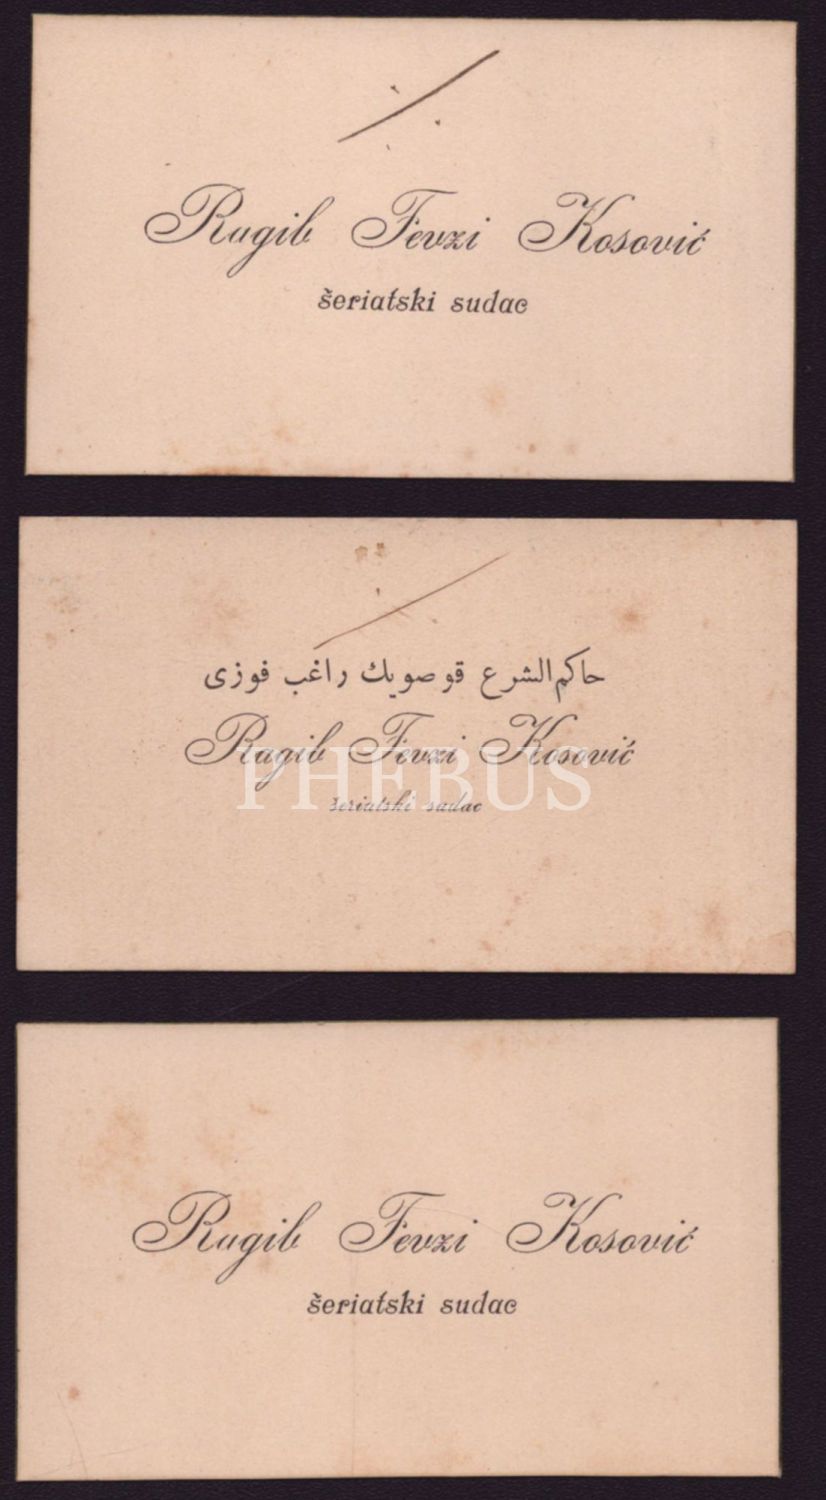 Ragib Fevzi Kosović
šeriatski sudac
حاكم الشرع قوصويك راغب فوزى
Ragib Fevzi Kosović
PHEBUS
šeriatski sudac
Ragib Fevzi Kosović
šeriatski sudac